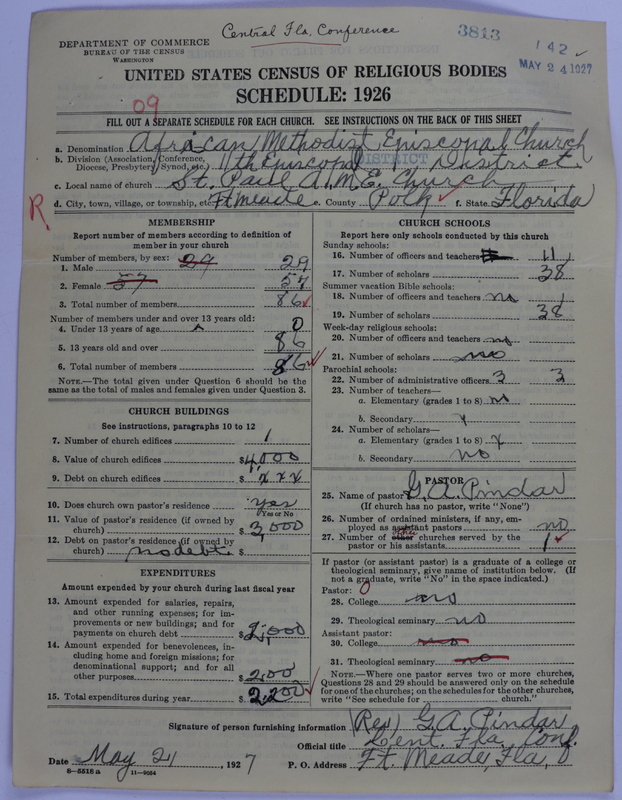 Central Fla. Conference
3813
142
MAY 24 1927
DEPARTMENT OF COMMERCE
BUREAU OF THE CENSUS
WASHINGTON
UNITED STATES CENSUS OF RELIGIOUS BODIES
SCHEDULE: 1926
09
FILL OUT A SEPARATE SCHEDULE FOR EACH CHURCH. SEE INSTRUCTIONS ON THE BACK OF THIS SHEET
a. Denomination African Methodist Episcopal Church
b. Division (Association, Conference, Diocese, Presbytery, Synod, etc.) 11th Episcopal District
DISTRICT
c. Local name of church St. Paul A.M.E. Church
d. City, town, village, or township, etc. Ft Meade e. County Polk f. State Florida
R
MEMBERSHIP
Report number of members according to definition of
member in your church
Number of members, by sex: 29
1. Male 29
2. Female 57 57
3. Total number of members 86
Number of members under and over 13 years old:
4. Under 13 years of age 0
5. 13 years old and over 86
6. Total number of members 86
NOTE.—The total given under Question 6 should be the
same as the total of males and females given under Question 3.
CHURCH BUILDINGS
See instructions, paragraphs 10 to 12
7. Number of church edifices 1
8. Value of church edifices $4,000
9. Debt on church edifices $ x x x
10. Does church own pastor's residence? yes
(Yes or No)
11. Value of pastor's residence (if owned by
church) $ 3,000
12. Debt on pastor's residence (if owned by
church) no debt $
EXPENDITURES
Amount expended by your church during last fiscal year
13. Amount expended for salaries, repairs,
and other running expenses; for im-
provements or new buildings; and for
payments on church debt $ 2,000
14. Amount expended for benevolences, in-
cluding home and foreign missions; for
denominational support; and for all
other purposes $ 200
15. Total expenditures during year $ 2,200
CHURCH SCHOOLS
Report here only schools conducted by this church
Sunday schools:
16. Number of officers and teachers 11
17. Number of scholars 38
Summer vacation Bible schools:
18. Number of officers and teachers no 1
19. Number of scholars 38
Week-day religious schools:
20. Number of officers and teachers no
21. Number of scholars no
Parochial schools:
22. Number of administrative officers 3 3
23. Number of teachers—
a. Elementary (grades 1 to 8) no
b. Secondary x
24. Number of scholars—
a. Elementary (grades 1 to 8) x
b. Secondary no
PASTOR
25. Name of pastor G. A. Pindar
(If church has no pastor, write "None")
26. Number of ordained ministers, if any, em-
ployed as assistant pastors no
27. Number of other churches served by the
pastor or his assistants 1
If pastor (or assistant pastor) is a graduate of a college or
theological seminary, give name of institution below. (If
not a graduate, write "No" in the space indicated.)
Pastor: 0
28. College no
29. Theological seminary no
Assistant pastor:
30. College no
31. Theological seminary no
NOTE.—Where one pastor serves two or more churches,
Questions 28 and 29 should be answered only on the schedule
for one of the churches; on the schedules for the other churches,
write "See schedule for church."
Signature of person furnishing information (Rev) G. A. Pindar
Official title Cent. Fla. Conf.
Date May 21, 1927 P. O. Address Ft. Meade, Fla,
8-5518 a 11-9034